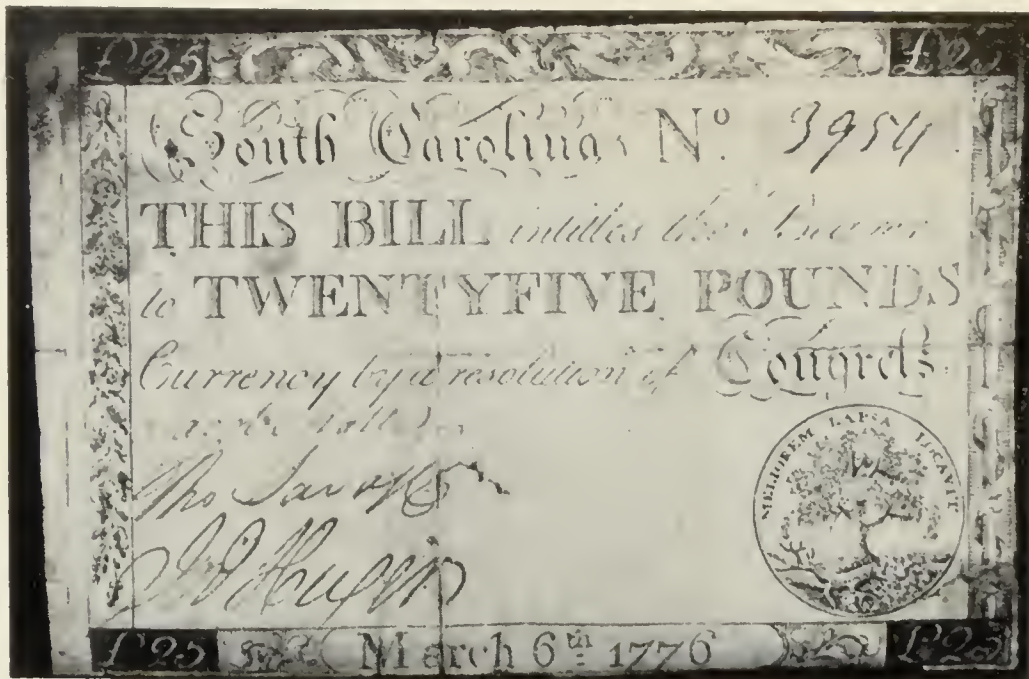 £25 £25
South Carolina Nº. 3954
THIS BILL intitles the Bearer
to TWENTYFIVE POUNDS
Currency by a resolution of Congreſs.
Tho Savage
MELIOREM LAPSA LOCAVIT
Huger
£25 March 6th 1776 £25